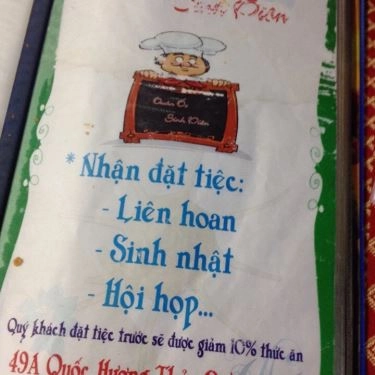 Sinh Viên
Quán Ốc
Sinh Viên
* Nhận đặt tiệc:
- Liên hoan
- Sinh nhật
- Hội họp...
Quý khách đặt tiệc trước sẽ được giảm 10% thức ăn
49A Quốc Hương Thảo